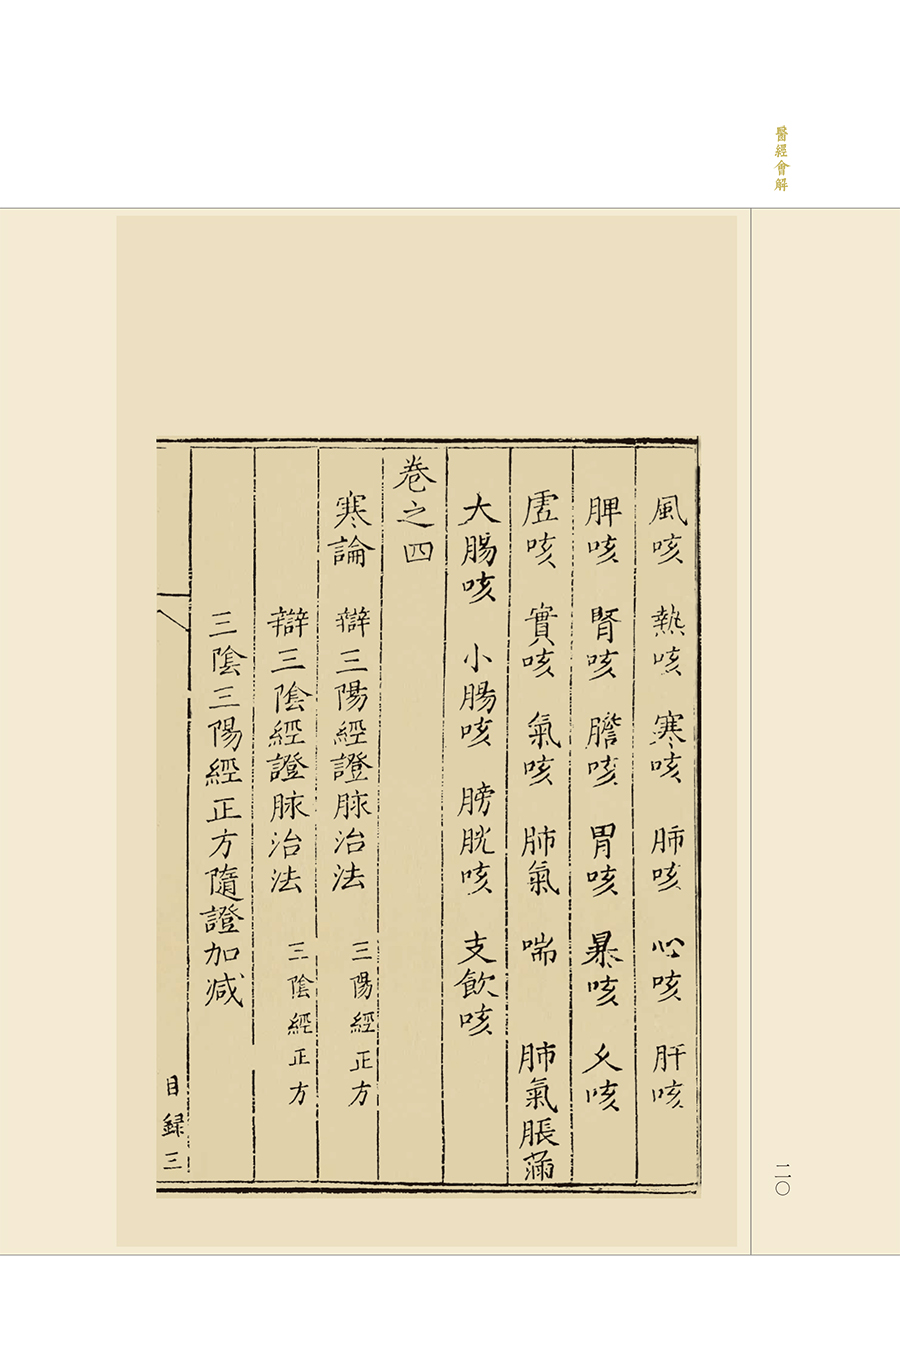 醫經會解
風咳 熱咳 寒咳 肺咳 心咳 肝咳
脾咳 腎咳 膽咳 胃咳 暴咳 久咳
虛咳 實咳 氣咳 肺氣 喘 肺氣脹滿
大腸咳 小腸咳 膀胱咳 支飲咳
卷之四
寒論 辯三陽經證脉治法 三陽經正方
辯三陰經證脉治法 三陰經正方
三陰三陽經正方隨證加減
目録三
二〇